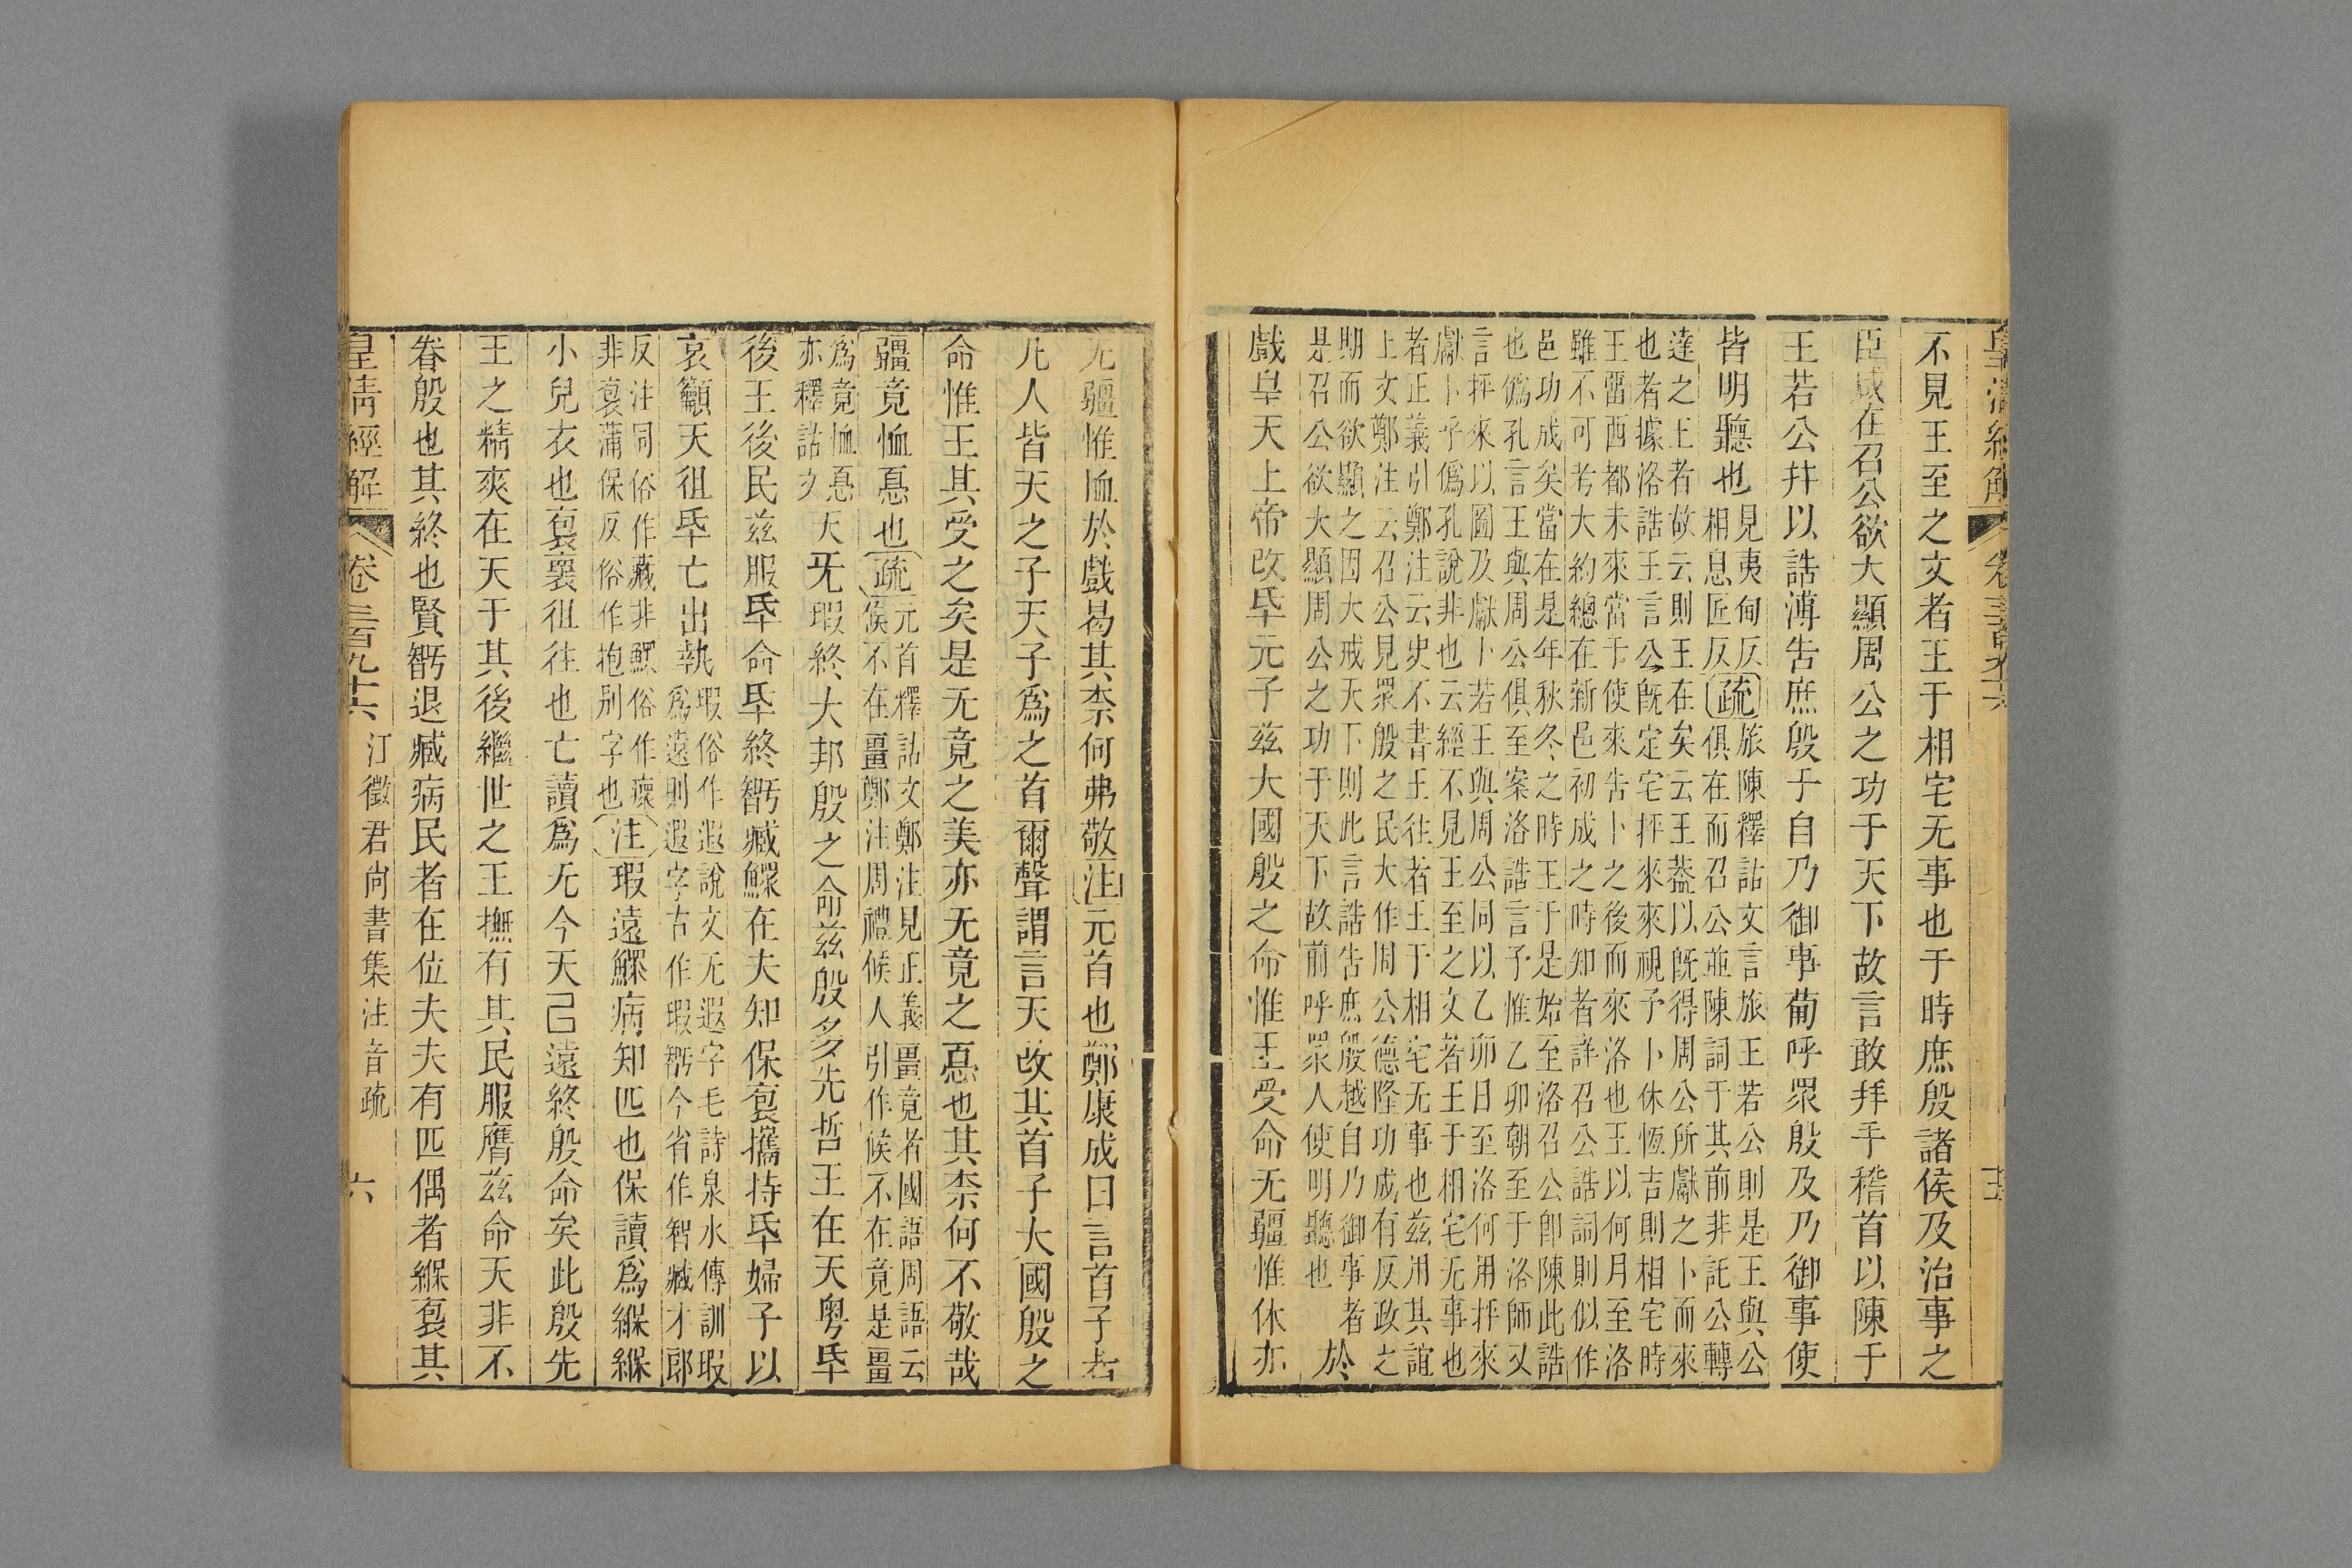 皇清經解 卷三百九十六
不見王至之文者王于相宅无事也于時庶殷諸侯及治事之
臣咸在召公欲大顯周公之功于天下故言敢拜手稽首以陳于
王若公幷以誥溥告庶殷于自乃御事葡呼眾殷及乃御事使
皆明聽也
見夷甸反
相息匠反
疏
旅陳釋詁文言旅王若公則是王與公
俱在而召公並陳詞于其前非託公轉
達之王者故云則王在矣云王葢以旣得周公所獻之卜而來
也者據洛誥王言公旣定宅抨來來視予卜休恆吉則相宅時
王畱西都未來當于使來告卜之後而來洛也王以何月至洛
雖不可考大約總在新邑初成之時知者詳召公誥詞則似作
邑功成矣當在是年秋冬之時王于是始至洛召公卽陳此誥
也僞孔言王與周公俱至案洛誥言予惟乙卯朝至于洛師又
言抨來以圖及獻卜若王與周公同以乙卯日至洛何用抨來
獻卜乎僞孔說非也云經不見王至之文者王于相宅无事也
者正義引鄭注云史不書王往者王于相宅无事也兹用其誼
上文鄭注云召公見眾殷之民大作周公德隆功成有反政之
期而欲顯之因大戒天下則此言誥告庶殷越自乃御事者
是召公欲大顯周公之功于天下故前呼眾人使明聽也
於
戲皇天上帝改氒元子兹大國殷之命惟王受命无疆惟休亦
无疆惟恤於戲曷其柰何弗敬注元首也鄭康成曰言首子者
凡人皆天之子天子爲之首爾聲謂言天改其首子大國殷之
命惟王其受之矣是无竟之美亦无竟之惪也其柰何不敬哉
疆竟恤惪也疏
元首釋詁文鄭注見正義畺竟者國語周語云
候不在畺鄭注周禮候人引作候不在竟是畺
爲竟恤惪
亦釋詁文
天旡瑕終大邦殷之命兹殷多先哲王在天粤氒
後王後民兹服氒命氒終斵臧鰥在夫知保裒攜持氒婦子以
哀籲天徂氒亡出執
瑕俗作遐說文无遐字毛詩泉水傳訓瑕
爲遠則遐字古作瑕斵今省作智臧才郎
反注同俗作藏非鰥俗作瘝
非裒蒲保反俗作抱别字也
注瑕遠鰥病知匹也保讀爲緥緥
小兒衣也裒褱徂往也亡讀爲无今天已遠終殷命矣此殷先
王之精爽在天于其後繼世之王撫有其民服膺兹命天非不
眷殷也其終也賢斵退臧病民者在位夫夫有匹偶者緥裒其
皇清經解 卷三百九十六 江徵君尙書集注音疏 六